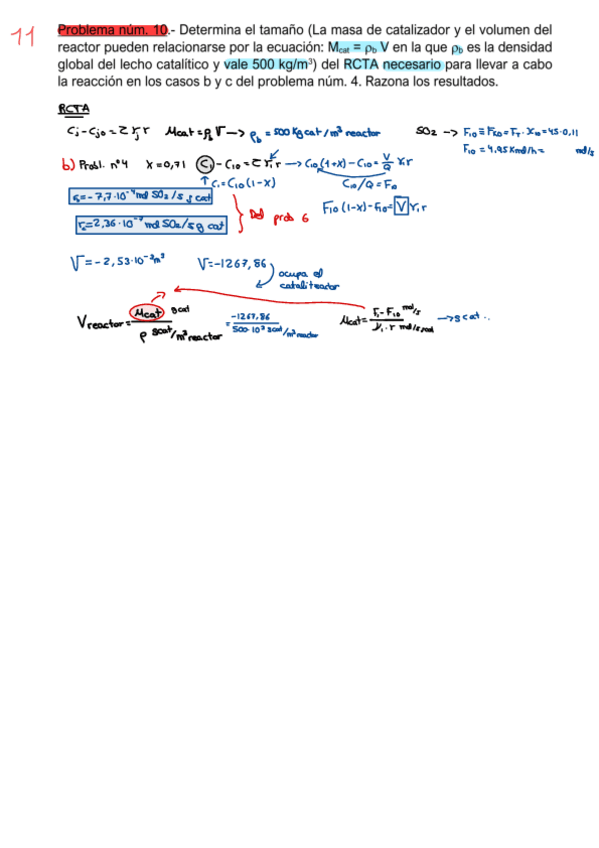 11
Problema núm. 10.- Determina el tamaño (La masa de catalizador y el volumen del
reactor pueden relacionarse por la ecuación: Mcat = ρb V en la que ρb es la densidad
global del lecho catalítico y vale 500 kg/m³) del RCTA necesario para llevar a cabo
la reacción en los casos b y c del problema núm. 4. Razona los resultados.
RCTA
Cj-Cjo=τ γj r Mcat=ρb V → ρb = 500 kg cat/m³ reactor SO2 → F10 ≡ F20 = FT · X10 = 45·0,11
F10 = 4,95 kmol/h = mol/s
b) Probl. nº4 X=0,71 C1 - C10 = τ γ1 r → C10(1+X) - C10 = V/Q γ1 r
↑ C1 = C10(1-X) C10/Q = F10
r1=-7,7·10⁻⁴ mol SO2/s g cat
F10(1-X)-F10=V γ1 r
r2=2,36·10⁻⁷ mol SO2/s g cat
Del prob 6
V=-2,53·10⁻³m³ V=-1267,86
ocupa el
catalizador
Vreactor = Mcat g cat / ρ g cat/m³ reactor = -1267,86 / 500·10³ g cat/m³ reactor Mcat = F1-F10 mol/s / γ1·r mol/s gcat → g cat.